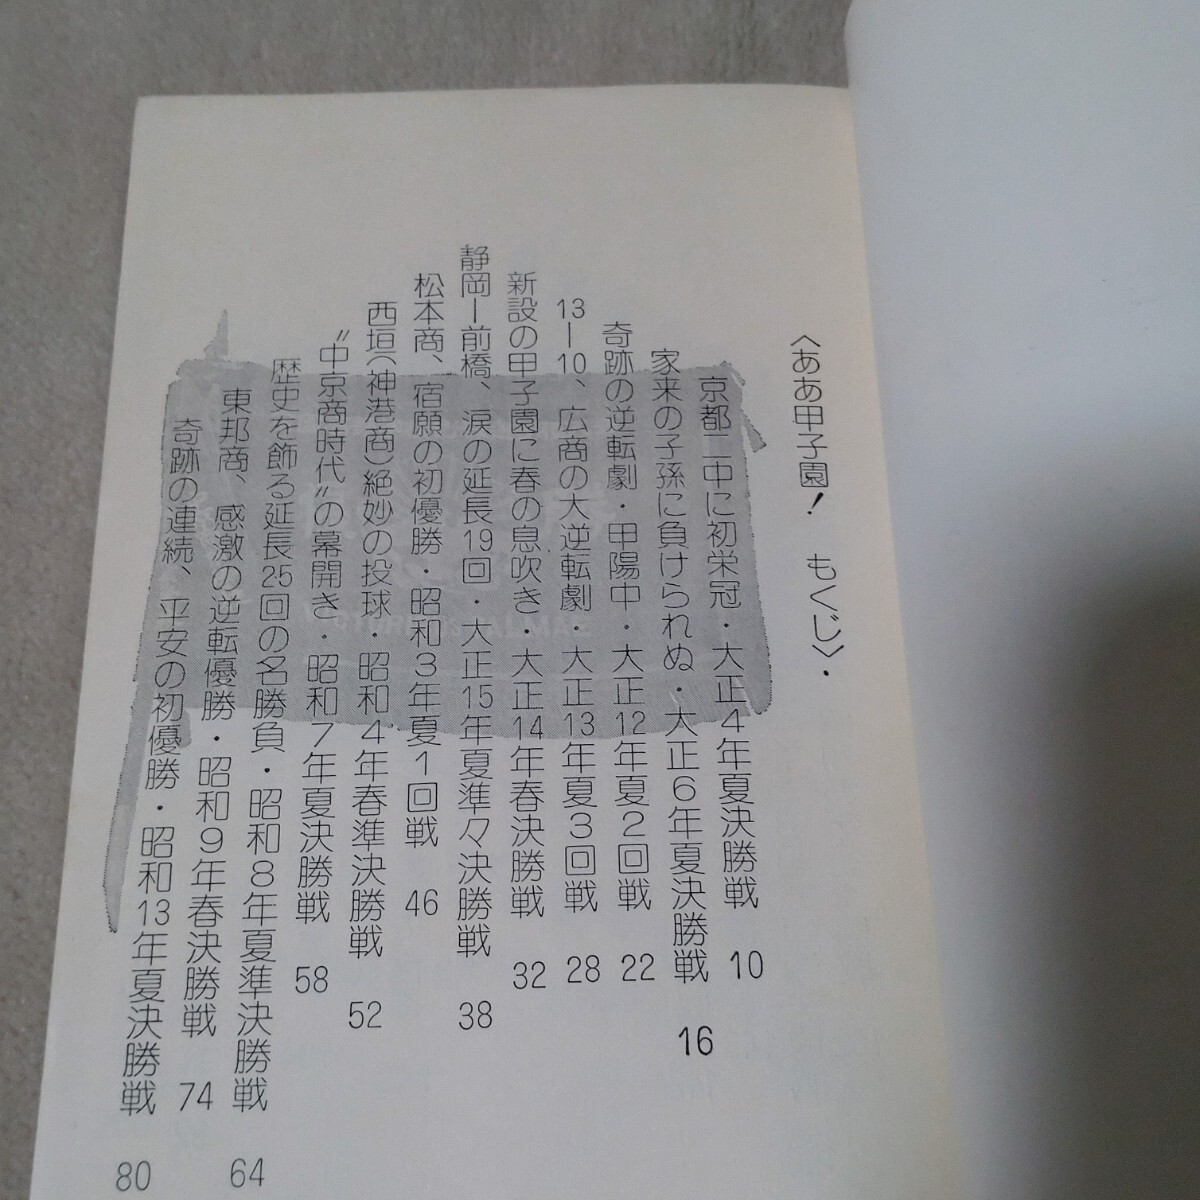 〈ああ甲子園！　もくじ〉・
京都二中に初栄冠・大正4年夏決勝戦　10
家来の子孫に負けられぬ・大正6年夏決勝戦　16
奇跡の逆転劇・甲陽中・大正12年夏2回戦　22
13―10、広商の大逆転劇・大正13年夏3回戦　28
新設の甲子園に春の息吹き・大正14年春決勝戦　32
静岡―前橋、涙の延長19回・大正15年夏準々決勝戦　38
松本商、宿願の初優勝・昭和3年夏1回戦　46
西垣（神港商）絶妙の投球・昭和4年春準決勝戦　52
〝中京商時代〟の幕開き・昭和7年夏決勝戦　58
歴史を飾る延長25回の名勝負・昭和8年夏準決勝戦　64
東邦商、感激の逆転優勝・昭和9年春決勝戦　74
奇跡の連続、平安の初優勝・昭和13年夏決勝戦　80